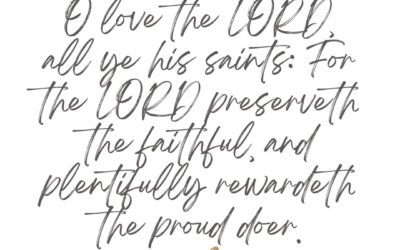 O love the LORD,
all ye his saints: For
the LORD preserveth
the faithful, and
plentifully rewardeth
the proud doer.